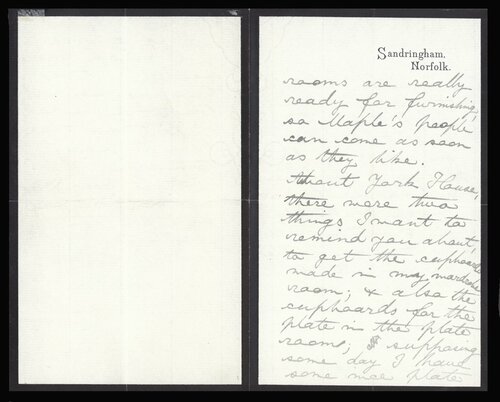 Sandringham.
Norfolk.
rooms are really
ready for furnishing,
so Maple's people
can come as soon
as they like.
About York House,
there were two
things I want to
remind you about,
to get the cupboards
made in my wardrobe
room; & also the
cupboards for the
plate in the plate
room; supposing
some day I have
some nice plate.